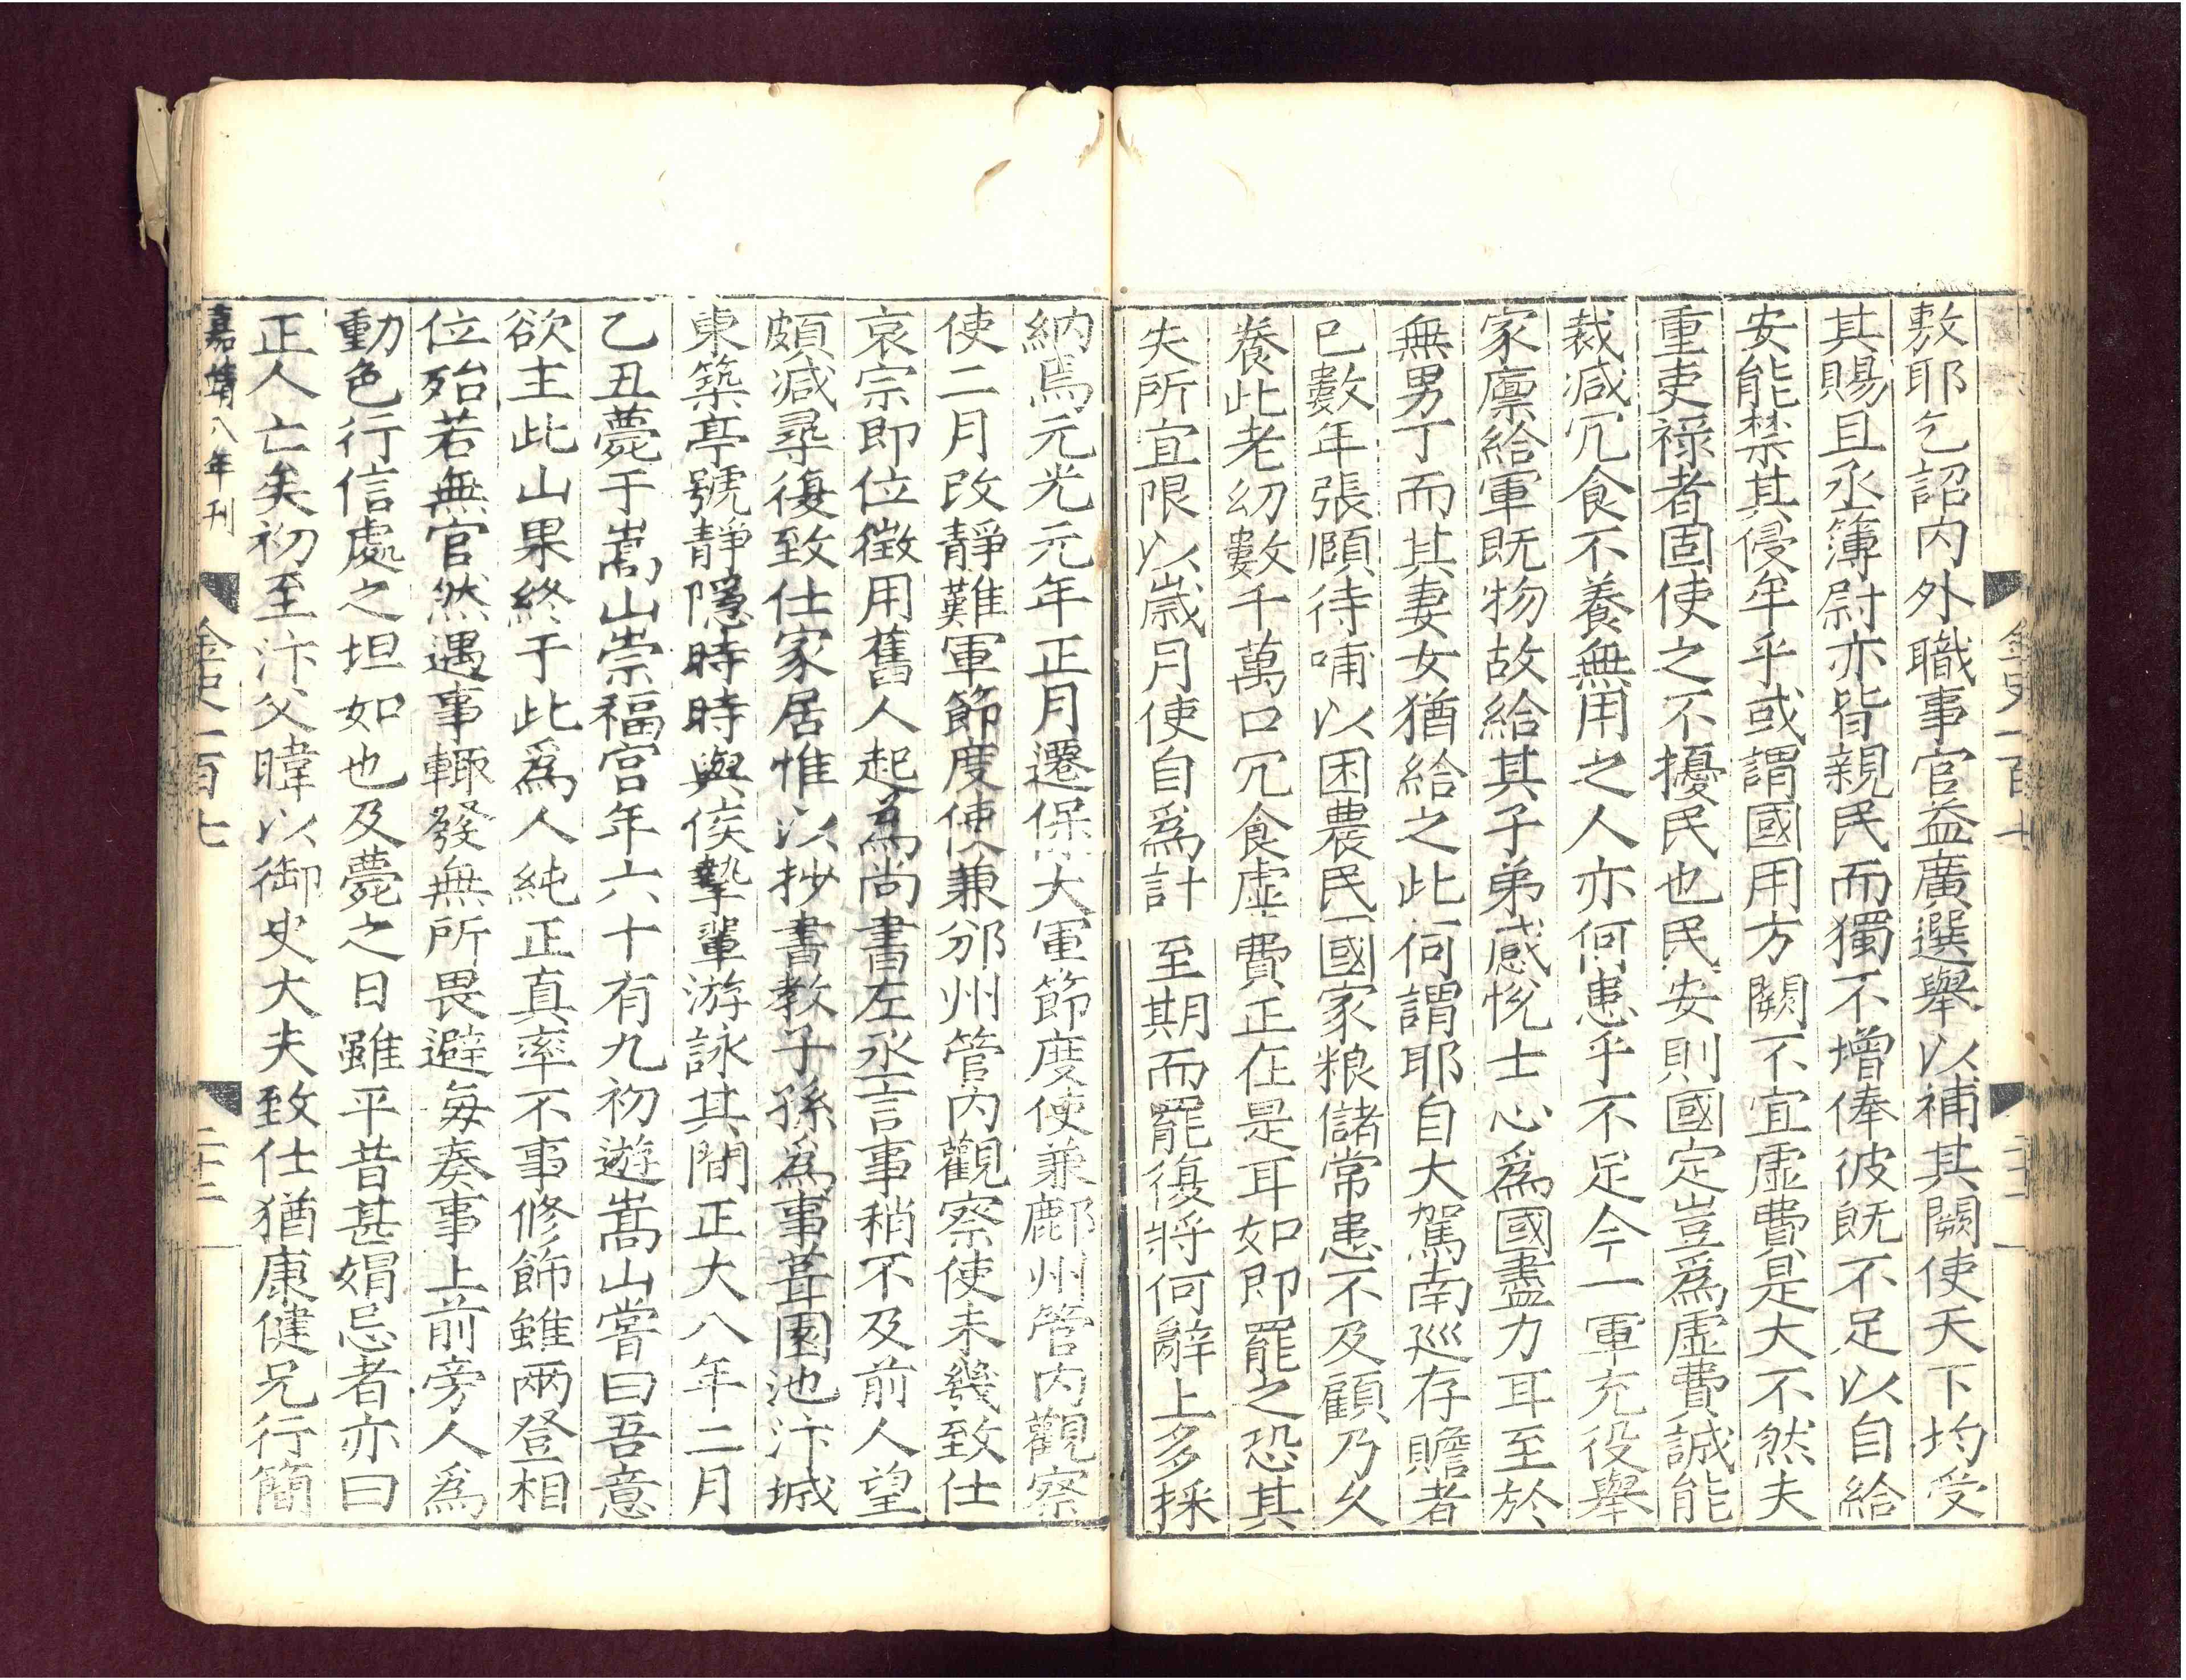 敷耶乞詔内外職事官益廣選舉以補其闕使天下均受
其賜且丞簿尉亦皆親民而獨不增俸彼既不足以自給
安能禁其侵牟乎或謂國用方闕不宜虚費是大不然夫
重吏禄者固使之不擾民也民安則國定豈爲虚費誠能
裁减冗食不養無用之人亦何患乎不足今一軍充役舉
家廪給軍既物故給其子弟感悅士心爲國盡力耳至於
無男丁而其妻女猶給之此何謂耶自大駕南廵存贍者
已數年張頤待哺以困農民國家粮儲常患不及顧乃久
養此老幼數千萬口冗食虚費正在是耳如即罷之恐其
失所宜限以歲月使自爲計至期而罷復將何辭上多採
納焉元光元年正月遷保大軍節度使兼鄜州管内觀察
使二月改靜難軍節度使兼邠州管内觀察使未幾致仕
哀宗即位徵用舊人起爲尚書左丞言事稍不及前人望
頗减尋復致仕家居惟以抄書教子孫爲事葺園池汴城
東築亭號靜隱時時與侯摯輩游詠其間正大八年二月
乙丑薨于嵩山崇福宫年六十有九初遊嵩山嘗曰吾意
欲主此山果終于此爲人純正真率不事修飾雖兩登相
位殆若無官然遇事輒發無所畏避每奏事上前旁人爲
動色行信處之坦如也及薨之日雖平昔甚媢忌者亦曰
正人亡矣初至汴父暐以御史大夫致仕猶康健兄行簡
嘉靖八年刊
金史一百七
二十二